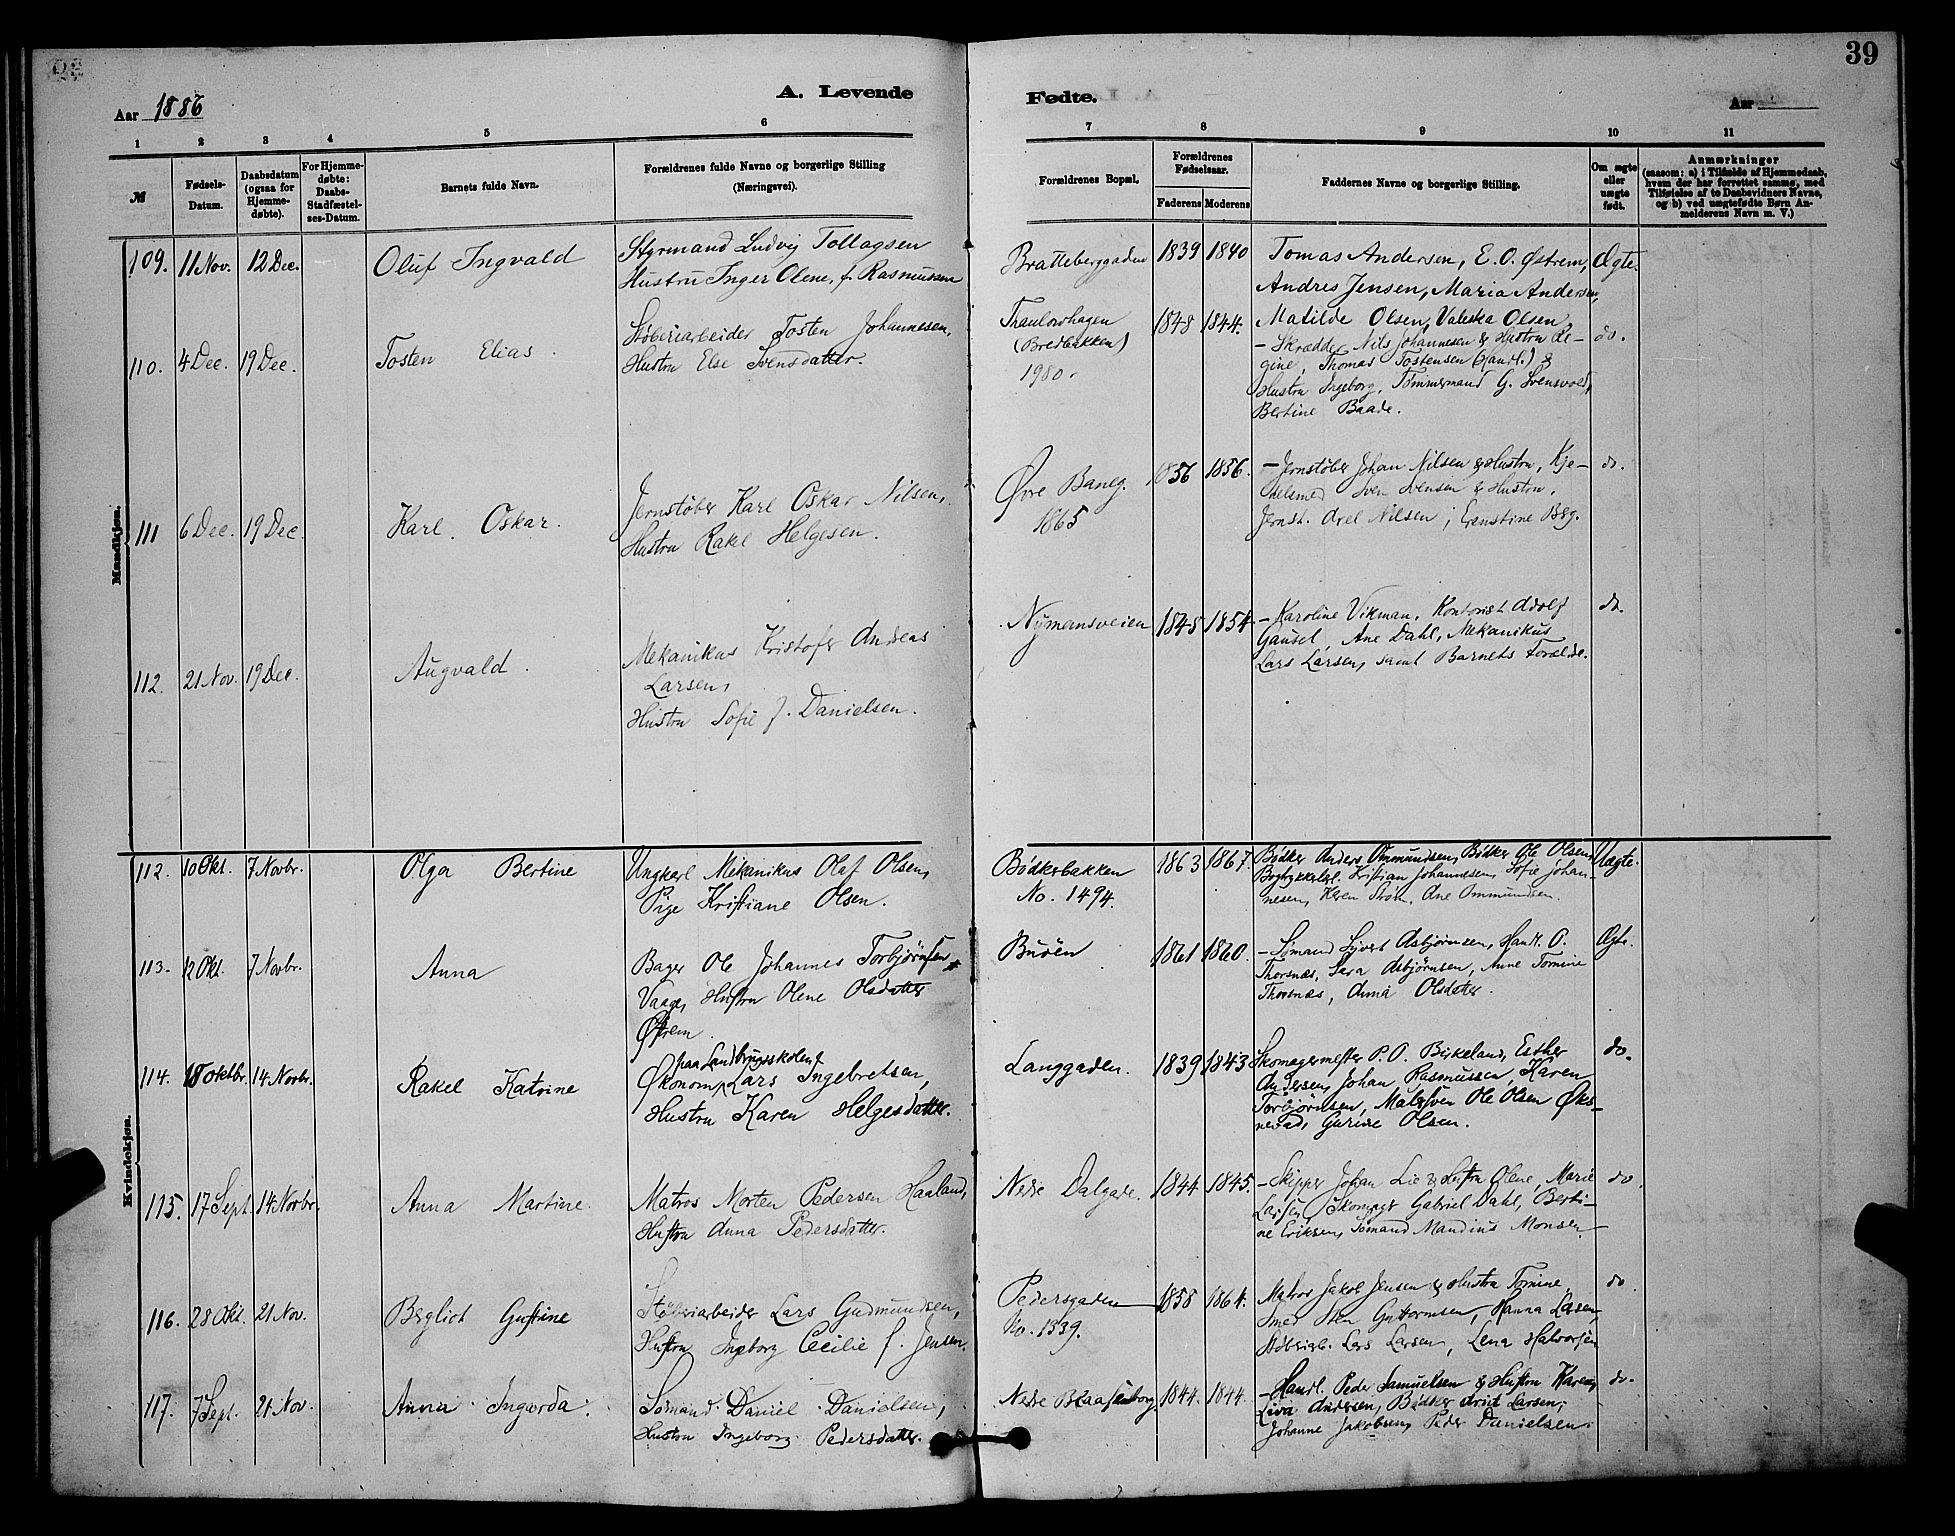 39
Aar 1886
A. Levende
Fødte.
Aar
1 2 3 4 5 6 7 8 9 10 11
№
Fødsels-
Datum.
Daabsdatum
(ogsaa for
Hjemme-
døbte).
For Hjemme-
døbte:
Daabs-
Stadfæstel-
ses-Datum.
Barnets fulde Navn.
Forældrenes fulde Navne og borgerlige Stilling
(Næringsvei).
Forældrenes Bopæl.
Forældrenes
Fødselsaar.
Faderens Moderens
Faddernes Navne og borgerlige Stilling.
Om ægte
eller
uægte
født.
Anmærkninger
(saasom: a) i Tilfælde af Hjemmedaab,
hvem der har forrettet samme, med
Tilføielse af to Daabsvidners Navne,
og b) ved uægtefødte Børn An-
melderens Navn m. V.)
Mandkjøn.
109. 11 Nov. 12 Dec. Oluf Ingvald
Styrmand Ludvig Tollagsen
Hustru Inger Olene, f. Rasmussen
Bratteberggaden 1839 1840
Tomas Andersen, E. O. Østrem,
Andres Jensen, Maria Andersen,
Matilde Olsen, Valeska Olsen
Ægte.
110. 4 Dec. 19 Dec. Tosten Elias.
Støberiarbeider Tosten Johannesen,
Hustru Else Svensdatter.
Thaulowhagen
(Bredbakken)
1980.
1848 1844.
- Skrædder Nils Johannesen & Hustru Re-
gine, Thomas Tostensen (Handl.) &
Hustru Ingeborg, Tømmermand G. Svensvold,
Bertine Baade.
do.
111 6 Dec. 19 Dec. Karl Oskar.
Jernstøber Karl Oskar Nilsen,
Hustru Rakel Helgesen.
Øvre Baneg.
1865
1856 1856.
- Jernstøber Johan Nilsen & Hustru, Kje-
delsmed Sven Svensen & Hustru,
Jernst. Axel Nilsen, Ernstine Berg.
do.
112. 21 Nov. 19 Dec. Augvald.
Mekanikus Kristofer Andreas
Larsen,
Hustru Sofie f. Danielsen.
Nymansveien 1848 1854.
- Karoline Vikman, Kontorist Adolf
Gausel, Ane Dahl, Mekanikus
Lars Larsen, samt Barnets Forældre.
do.
Kvindekjøn.
112. 10 Okt. 7 Novbr. Olga Bertine
Ungkarl Mekanikus Olaf Olsen,
Pige Kristiane Olsen.
Bødkerbakken
No. 1494.
1863 1867.
Bødker Anders Ommundsen, Bødker Ole Olsen,
Bogtrykkerl. Kristian Johannesen, Sofie Johan-
nesen, Karen Strøm, Ane Ommundsen.
Uægte.
113. 12 Okt. 7 Novbr. Anna
Bager Ole Johannes Torbjørnsen
Vaage, Hustru Olene Olsdatter
Østrem.
Buøen 1861 1860.
- Sømand Sjvert Asbjørnsen, Handl. O.
Thorsnæs, Sara Asbjørnsen, Anne Tomine
Thorsnæs, Anna Olsdatter.
Ægte.
114. 18 Oktbr. 14 Novbr. Rakel Katrine
paa Landbrugsskolen
Økonom Lars Ingebretsen,
Hustru Karen Helgesdatter.
Langgaden. 1839 1843
Skomagermester P. O. Birkeland, Esther
Andersen, Johan Rasmussen, Karen
Torbjørnsen, Malersven Ole Olsen Øks-
nevad, Gurine Olsen.
do.
115. 17 Sept. 14 Novbr. Anna Martine.
Matros Morten Pedersen Haaland,
Hustru Anna Pedersdatter.
Nedre Dalgade. 1844. 1845.
- Skipper Johan Lie & Hustru Olene, Marie
Larsen, Skomager Gabriel Dahl, Berti-
ne Eriksen, Sømand Mandius Monsen
do.
116. 28 Okt. 21 Nov. Bergliot Gustine
Støberiarbeider Lars Gudmundsen,
Hustru Ingeborg Cecilie f. Jensen.
Pedersgaden
No. 1339.
1858 1864.
Matros Jakob Jensen & Hustru Tomine,
Smed Sten Guttormsen, Hanna Larsen,
Støberiarb. Lars Larsen, Lena Halvorsen
do
117. 7 Sept. 21 Nov. Anna Ingarda.
Sømand Daniel Danielsen,
Hustru Ingeborg Pedersdatter.
Nedre Blaasenborg. 1844. 1844.
- Handl. Peder Samuelsen & Hustru Karen,
Lava Andersen, Bødker Arnt Larsen,
Johanne Jakobsen, Peder Danielsen.
do.